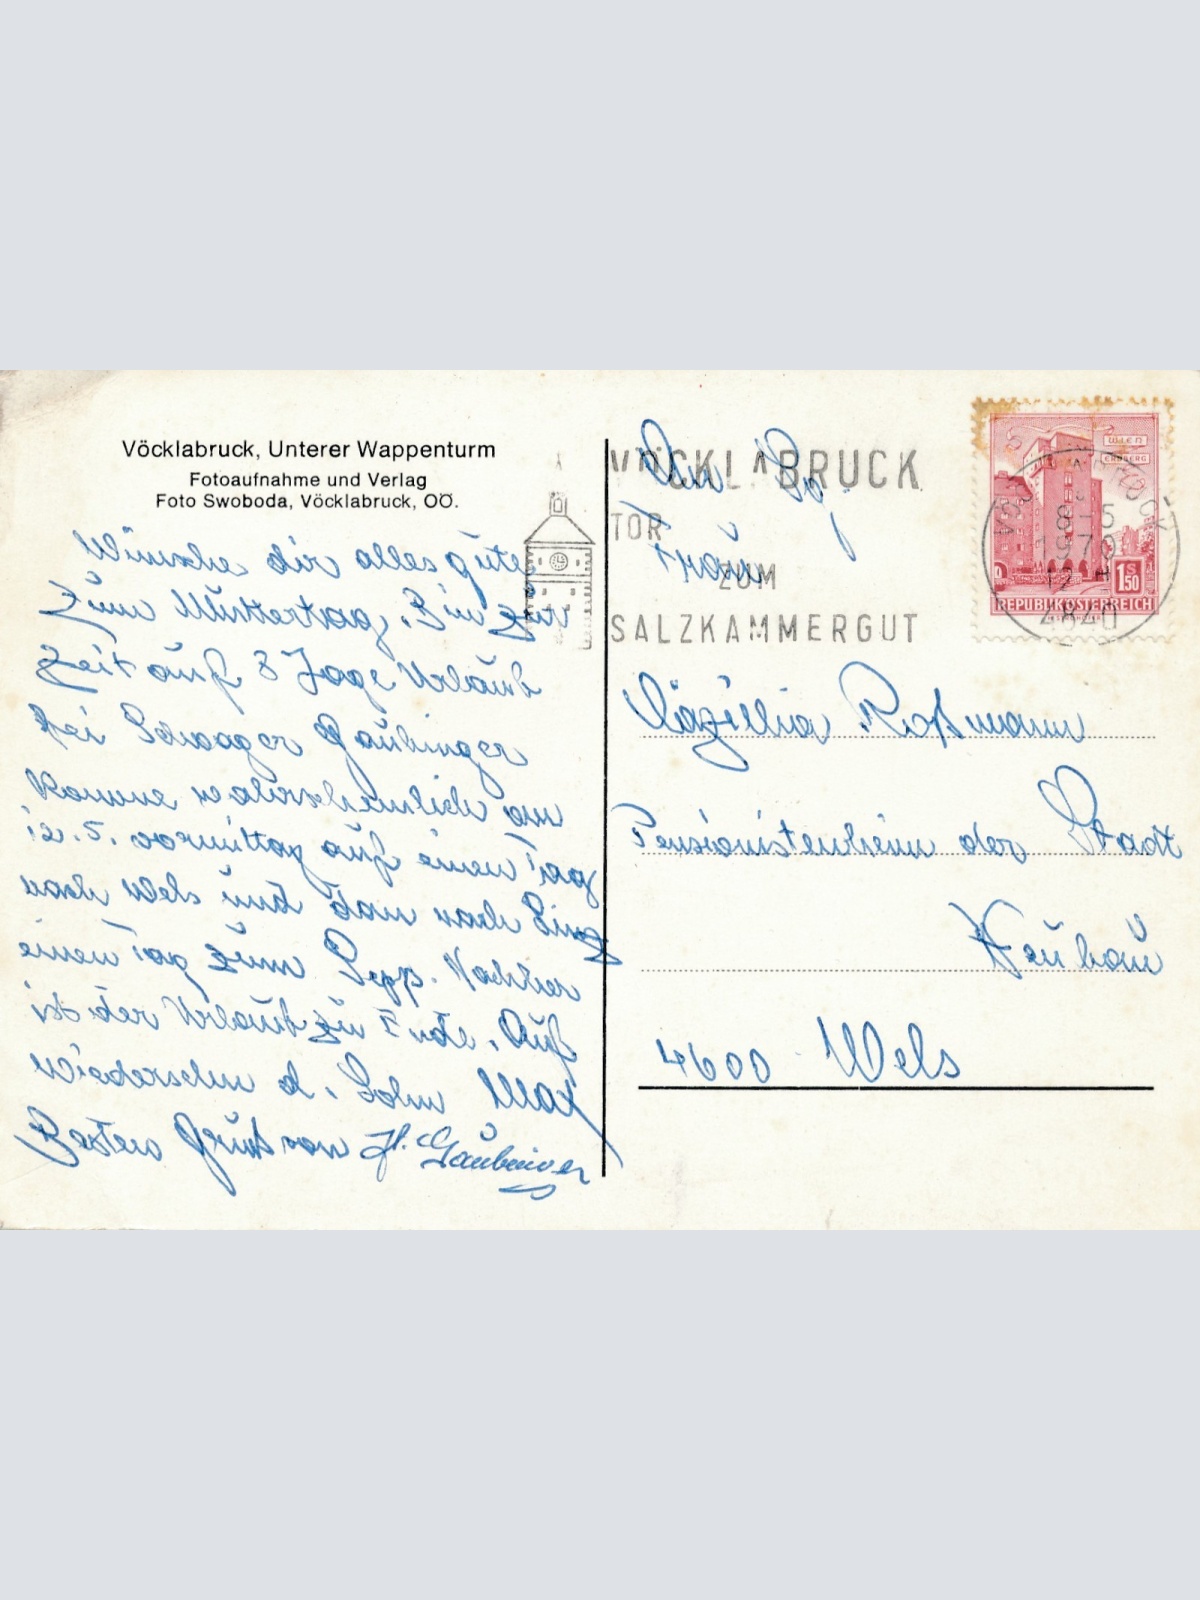 Vöcklabruck, Unterer Wappenturm
Fotoaufnahme und Verlag
Foto Swoboda, Vöcklabruck, OÖ.
Wünsche dir alles gute
zum Muttertag. Bin zur
Zeit auf 8 Tage Urlaub
bei Schwager Gaubinger
komme wahrscheinlich am
12. 5. vormittag auf einen Tag
nach Wels und dan nach Linz
einen Tag zum Sepp. Nachher
ist der Urlaub zu Ende. Auf
wiedersehn d. Sohn Max
Besten Gruß von
VÖCKLABRUCK
TOR
ZUM
SALZKAMMERGUT
WIEN
ERDBERG
1S50
REPUBLIK ÖSTERREICH
8-5
1970
4840
An
Frau
Cäzillia Roßmann
Pensionistenheim der Stadt
Neubau
4600 Wels